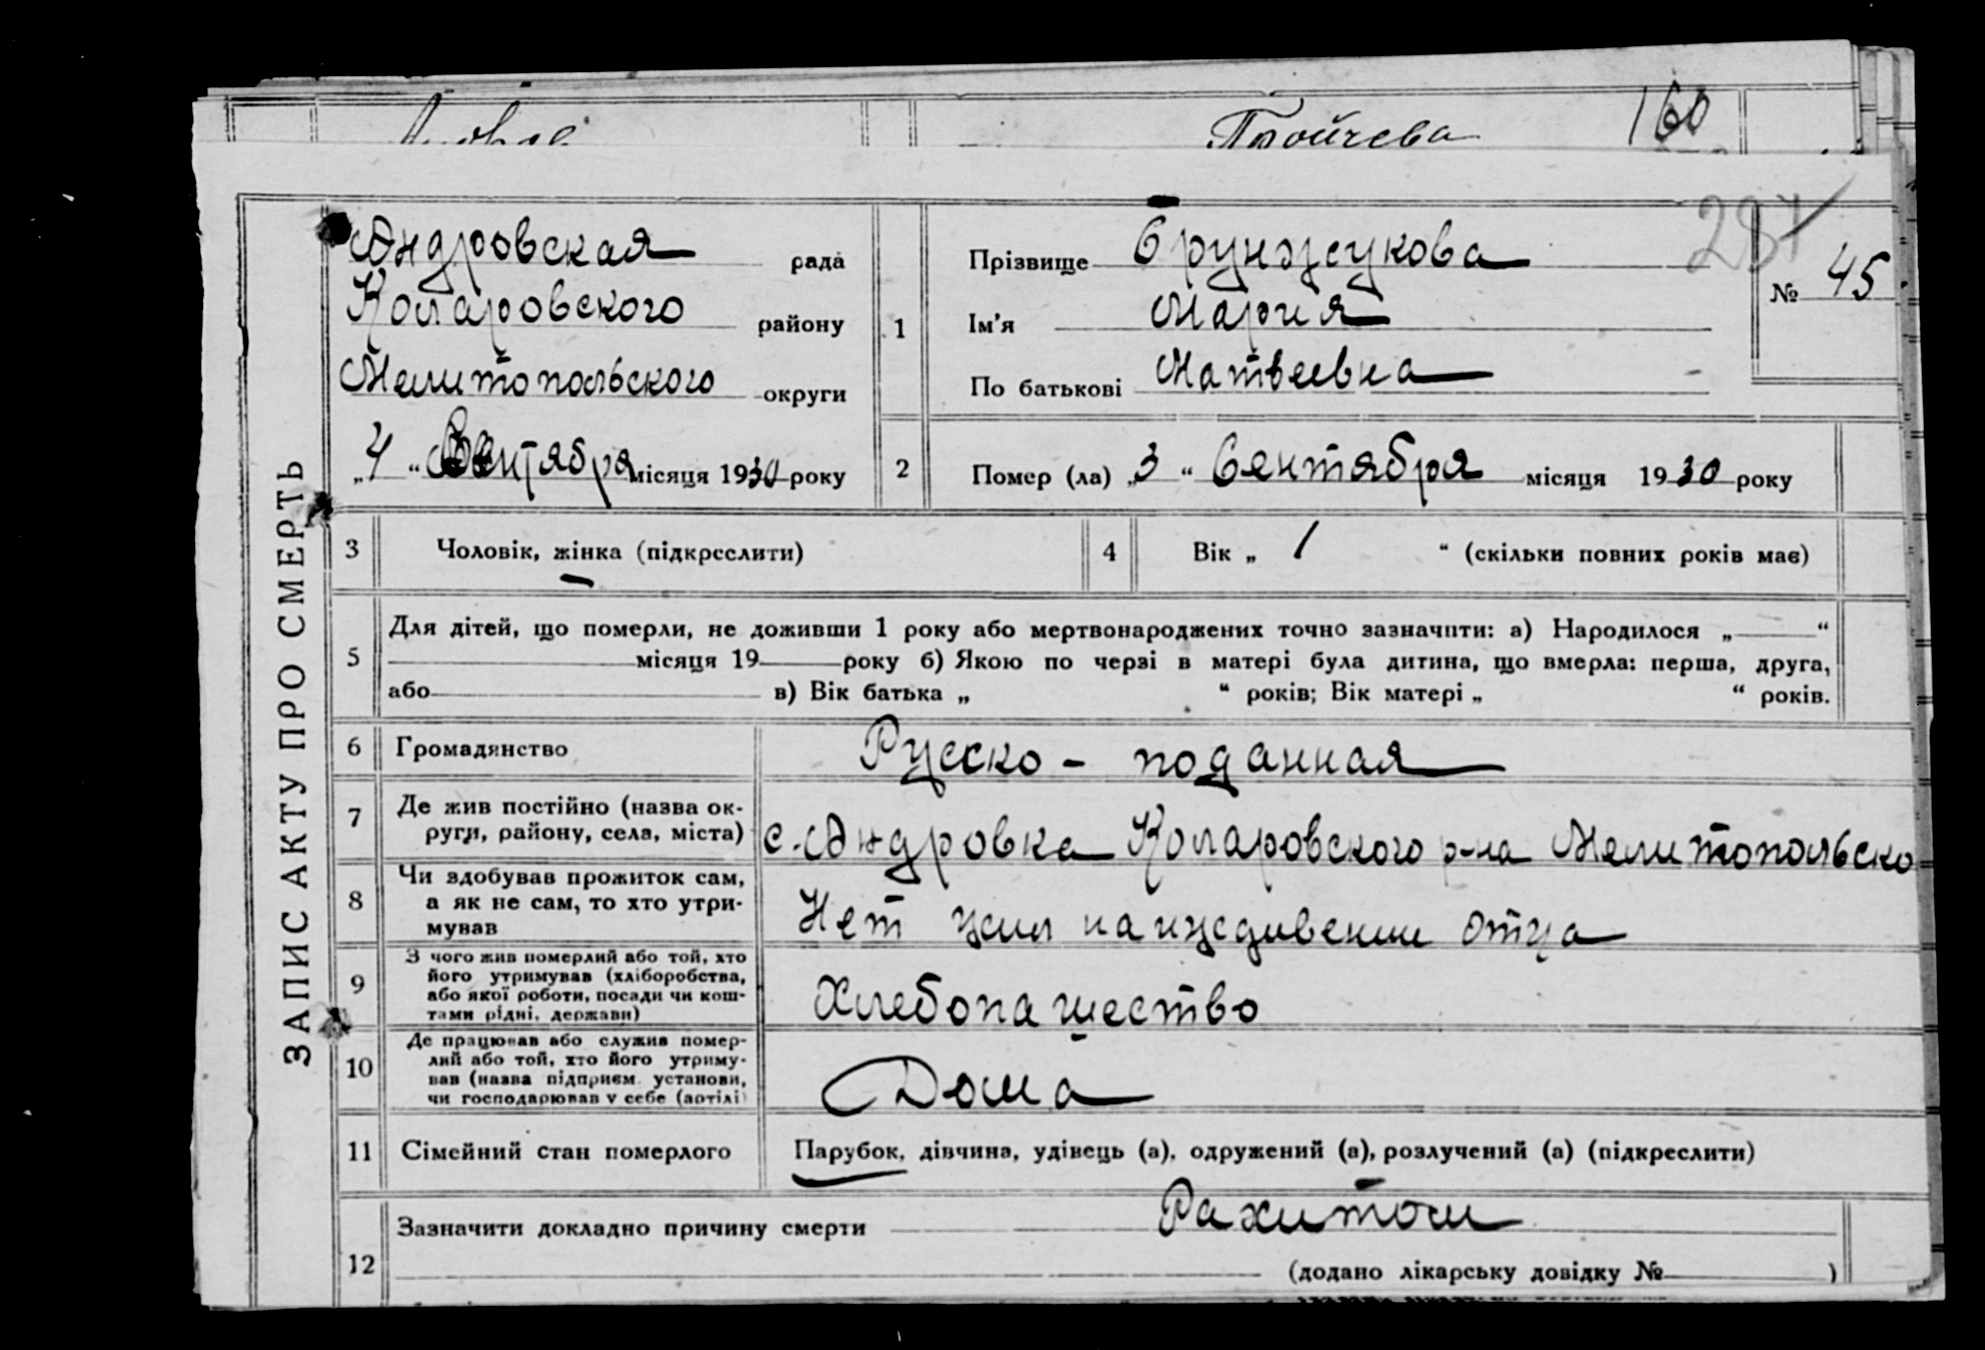 Тройчева 160
ЗАПИС АКТУ ПРО СМЕРТЬ
Андровская рада
Коларовского району
Мелитопольского округи
„4“ Сентября місяця 1930 року
287
№ 45
1 Прізвище Брунжукова
Ім'я Мария
По батькові Матвеевна
2 Помер (ла) „3“ Сентября місяця 1930 року
3 Чоловік, жінка (підкреслити)
4 Вік „1“ (скільки повних років має)
5 Для дітей, що померли, не доживши 1 року або мертвонароджених точно зазначити: а) Народилося „ “
місяця 19 року б) Якою по черзі в матері була дитина, що вмерла: перша, друга,
або в) Вік батька „ “ років; Вік матері „ “ років.
6 Громадянство Русско - поданная
7 Де жив постійно (назва ок-
руги, району, села, міста) с. Андровка Коларовского р-на Мелитопольско
8 Чи здобував прожиток сам,
а як не сам, то хто утри-
мував
Нет на иждивении отца
9 З чого жив померлий або той, хто
його утримував (хліборобства,
або якої роботи, посади чи кош-
тами рідні, держави)
Хлебопашество
10 Де працював або служив помер-
лий або той, хто його утриму-
вав (назва підприєм. установи,
чи господарював у себе (артілі)
Дома
11 Сімейний стан померлого Парубок, дівчина, удівець (а), одружений (а), розлучений (а) (підкреслити)
12 Зазначити докладно причину смерти Рахитом
(додано лікарську довідку № )